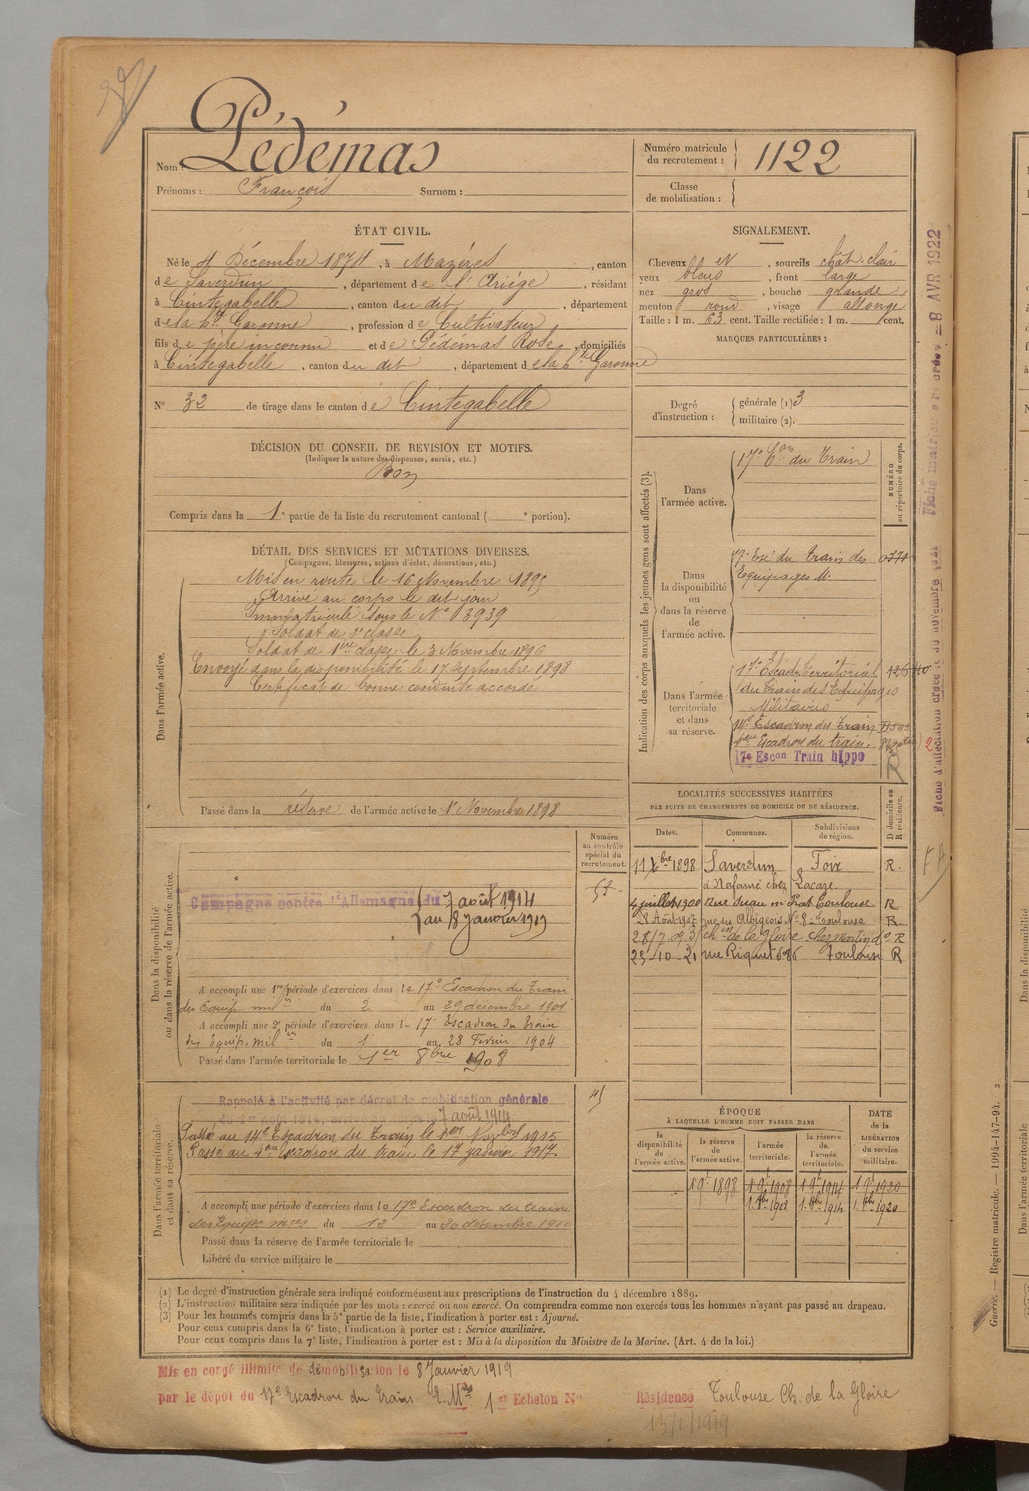 Nom : Pédémas
Prénoms : François Surnom :
Numéro matricule du recrutement : 1122
Classe de mobilisation :
ÉTAT CIVIL.
Né le 4 Décembre 1874, à Mazères, canton
de Saverdun, département de l'Ariège, résidant
à Cintegabelle, canton du dit, département
de la hte Garonne, profession de Cultivateur
fils de père inconnu et de Pédémas Rose, domiciliés
à Cintegabelle, canton du dit, département de la hte Garonne
N° 32 de tirage dans le canton de Cintegabelle
DÉCISION DU CONSEIL DE REVISION ET MOTIFS.
(Indiquer la nature des dispenses, sursis, etc.)
Bon
Compris dans la 1e partie de la liste du recrutement cantonal ( e portion).
SIGNALEMENT.
Cheveux et, sourcils chât. clair
yeux bleus, front large
nez gros, bouche grande
menton rond, visage allongé
Taille : 1 m. 63 cent. Taille rectifiée : 1 m. cent.
MARQUES PARTICULIÈRES :
Degré d'instruction : générale (1) 3
militaire (2).
DÉTAIL DES SERVICES ET MUTATIONS DIVERSES.
(Campagnes, blessures, actions d'éclat, décorations, etc.)
Dans l'armée active.
Mis en route le 16 Novembre 1895
Arrivé au corps le dit jour
Immatriculé sous le N° 03939
Soldat de 2e classe
Soldat de 1ère classe le 3 Novembre 1896
Envoyé dans la disponibilité le 17 Septembre 1898
Certificat de bonne conduite accordé
Passé dans la réserve de l'armée active le 1er Novembre 1898
Indication des corps auxquels les jeunes gens sont affectés (3).
NUMÉRO au répertoire du corps.
Dans l'armée active.
17e Eon du Train
Dans la disponibilité ou dans la réserve de l'armée active.
17e Esc. du Train des
Equipages Mr.
Dans l'armée territoriale et dans sa réserve.
17e Escadn Territorial
du Train des Equipages
Militaires
14e Escadron du Train
4eme Escadron du train
17e Escon Train hippo
Dans la disponibilité ou dans la réserve de l'armée active.
Numéro au contrôle spécial du recrutement.
Campagne contre l'Allemagne du 7 août 1914
au 8 Janvier 1919
A accompli une 1re période d'exercices dans le 17e Escadron du Train
des Equip. milres du 2 au 29 décembre 1901
A accompli une 2e période d'exercices dans le 17e Escadron du train
des Equip. milres du 1 au 28 Février 1904
Passé dans l'armée territoriale le 1er 8bre 1908
LOCALITÉS SUCCESSIVES HABITÉES
PAR SUITE DE CHANGEMENTS DE DOMICILE OU DE RÉSIDENCE.
Dates. Communes. Subdivisions de région. D domicile ou R résidence.
11 Xbre 1898 Saverdun Foix R.
4 juillet 1900 Toulouse R
8 Août 1907 Nº 8 - Toulouse R.
chin de la Gloire do R
25-10-21 rue Riquet Toulouse R
Dans l'armée territoriale et dans sa réserve.
Rappelé à l'activité par décret de mobilisation générale
7 août 1914
Passé au 14e Escadron du Train le 1er 1915
Passé au 4eme Escadron du train le 17 janvier 1917.
A accompli une période d'exercices dans le 17e Escadron du train
des Equip. mres du 12 au 20 décembre 1910
Passé dans la réserve de l'armée territoriale le
Libéré du service militaire le
ÉPOQUE
À LAQUELLE L'HOMME DOIT PASSER DANS
la disponibilité de l'armée active. la réserve de l'armée active. l'armée territoriale. la réserve de l'armée territoriale. DATE DE LA LIBÉRATION du service militaire.
1 9e 1898 1 9e 1908 1 9e 1914 1 9e 1920
1. 8bre 1908 1. 8bre 1914 1. 8bre 1920
(1) Le degré d'instruction générale sera indiqué conformément aux prescriptions de l'instruction du 4 décembre 1889.
(2) L'instruction militaire sera indiquée par les mots : exercé ou non exercé. On comprendra comme non exercés tous les hommes n'ayant pas passé au drapeau.
(3) Pour les hommes compris dans la 5e partie de la liste, l'indication à porter est : Ajourné.
Pour ceux compris dans la 6e liste, l'indication à porter est : Service auxiliaire.
Pour ceux compris dans la 7e liste, l'indication à porter est : Mis à la disposition du Ministre de la Marine. (Art. 4 de la loi.)
Mis en congé illimité de démobilisation le 8 Janvier 1919
par le dépôt du 17e Escadron du Train 1er Echelon N°
Résidence Toulouse Ch. de la Gloire
Guerre. — Registre matricule. — 1994-147-94.
Fiche matricule créée — 8 AVR 1922